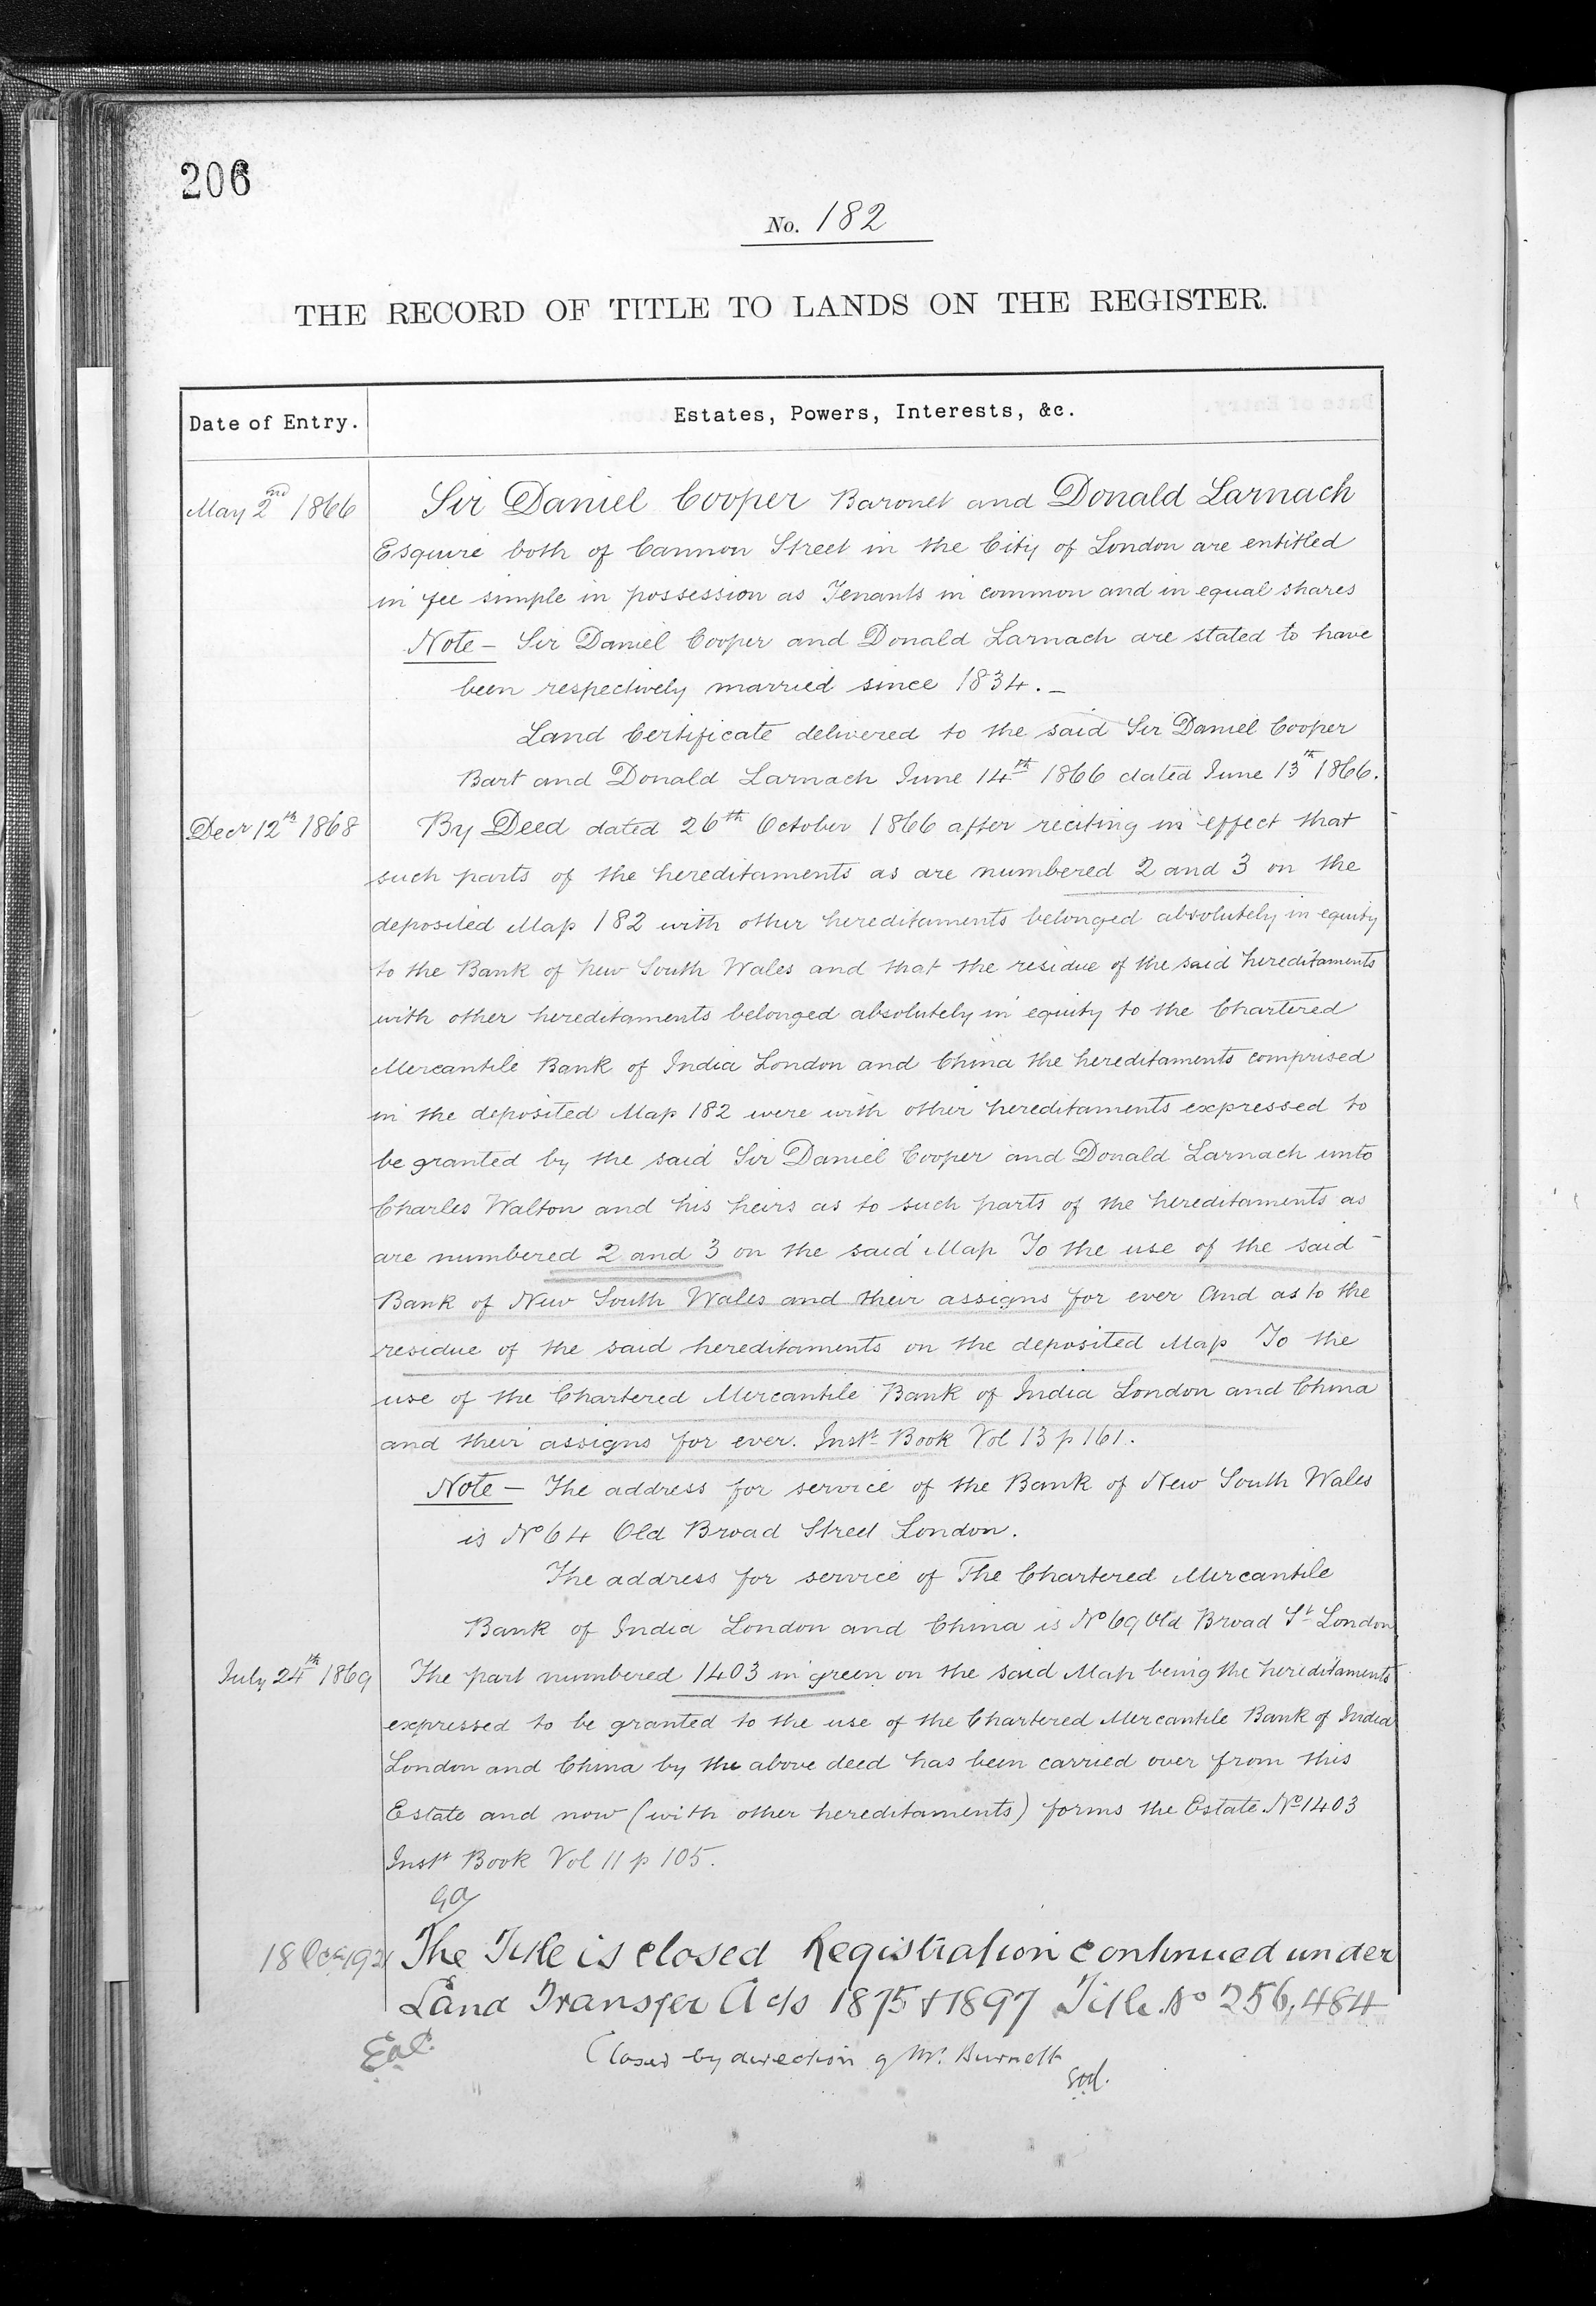 206
No. 182
THE RECORD OF TITLE TO LANDS ON THE REGISTER.
Date of Entry.
Estates, Powers, Interests, &c.
May 2nd 1866
Sir Daniel Cooper Baronet and Donald Larnach
Esquire both of Cannon Street in the City of London are entitled
in fee simple in possession as Tenants in common and in equal shares
Note – Sir Daniel Cooper and Donald Larnach are stated to have
been respectively married since 1834. –
Land Certificate delivered to the said Sir Daniel Cooper
Bart and Donald Larnach June 14th 1866 dated June 13th 1866.
Decr 12th 1868
By Deed dated 26th October 1866 after reciting in effect that
such parts of the hereditaments as are numbered 2 and 3 on the
deposited Map 182 with other hereditaments belonged absolutely in equity
to the Bank of New South Wales and that the residue of the said hereditaments
with other hereditaments belonged absolutely in equity to the Chartered
Mercantile Bank of India London and China the hereditaments comprised
in the deposited Map 182 were with other hereditaments expressed to
be granted by the said Sir Daniel Cooper and Donald Larnach unto
Charles Walton and his heirs as to such parts of the hereditaments as
are numbered 2 and 3 on the said Map To the use of the said
Bank of New South Wales and their assigns for ever And as to the
residue of the said hereditaments on the deposited Map To the
use of the Chartered Mercantile Bank of India London and China
and their assigns for ever. Instt Book Vol 13 p 161.
Note – The address for service of the Bank of New South Wales
is No 64 Old Broad Street London.
The address for service of The Chartered Mercantile
Bank of India London and China is No 69 Old Broad St London
July 24th 1869
The part numbered 1403 in green on the said Map being the hereditaments
expressed to be granted to the use of the Chartered Mercantile Bank of India
London and China by the above deed has been carried over from this
Estate and now (with other hereditaments) forms the Estate No 1403
Instt Book Vol 11 p 105.
18 Oct 1921
The Title is closed Registration continued under
Land Transfer Acts 1875 & 1897 Title No 256,484
Closed by direction of Mr. Burnett